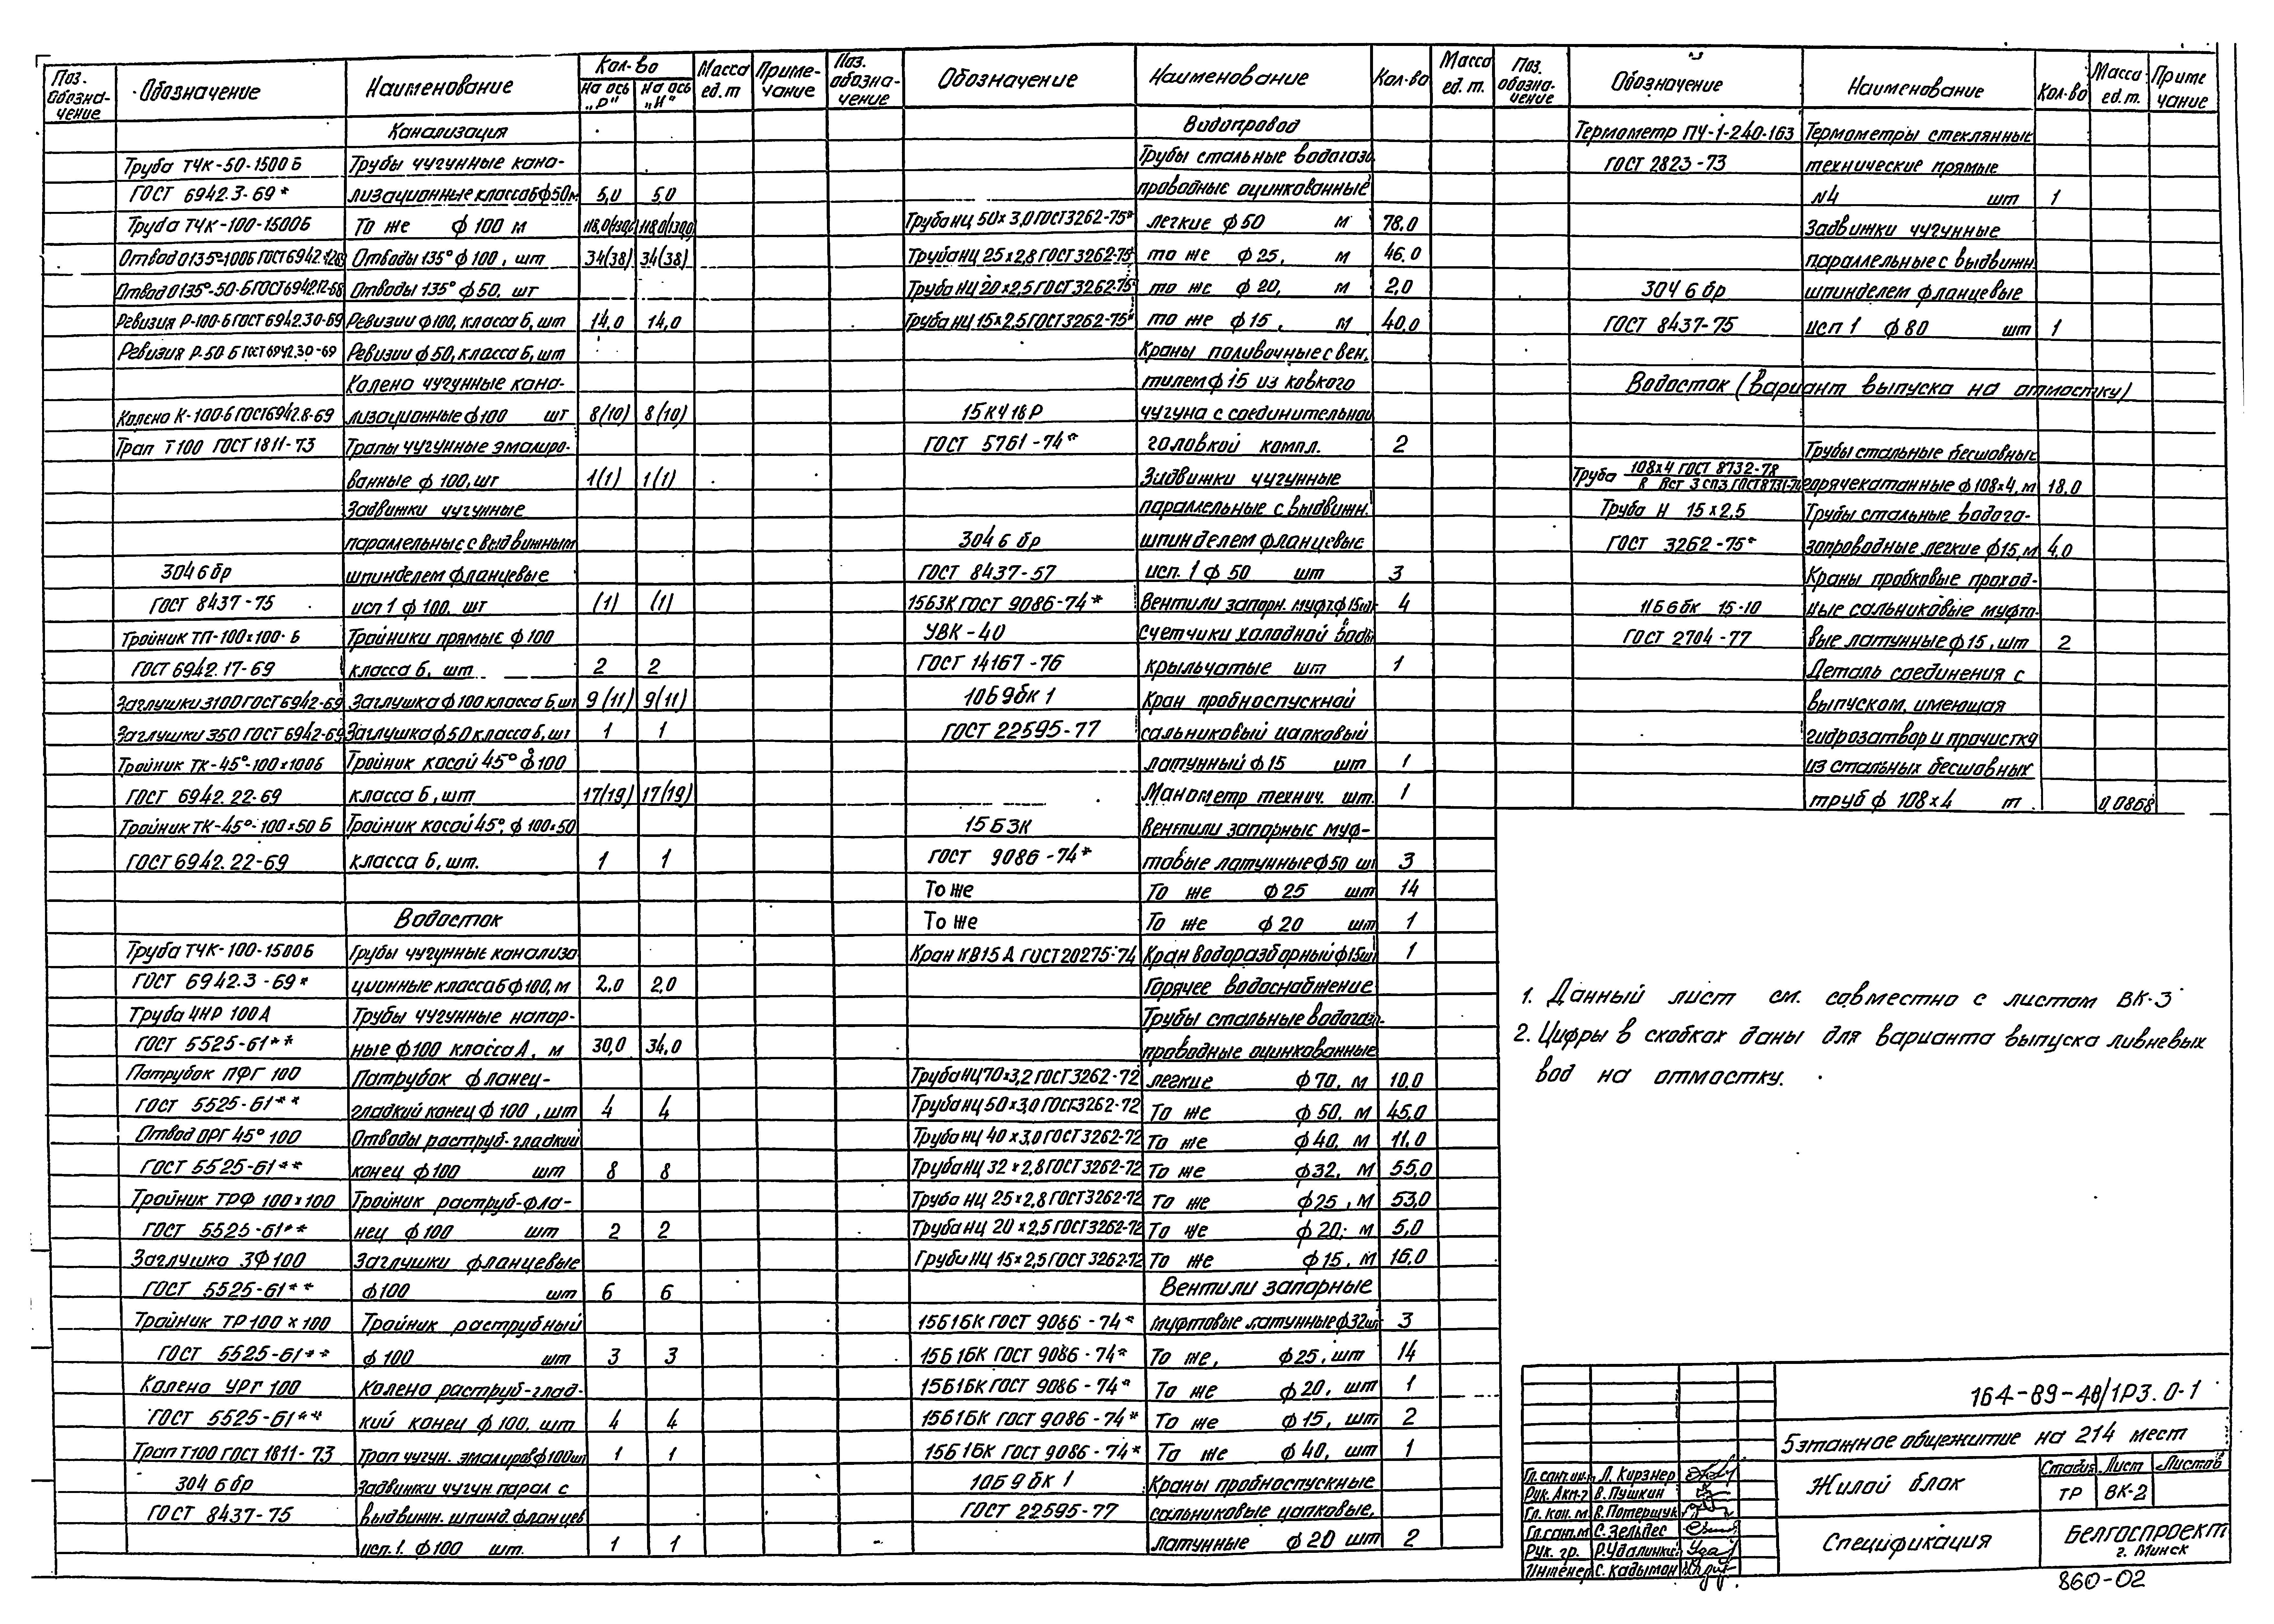 Поз. обозна-чение | Обозначение | Наименование | Кол-во на ось „Р" | на ось „И" | Масса ед.т | Приме-чание
Канализация
Труба ТЧК-50-1500Б | Трубы чугунные кана-
ГОСТ 6942.3-69* | лизационные класса Б ф50м | 5,0 | 5,0
Труба ТЧК-100-1500Б | То же ф 100 м | 118,0/130,0 | 118,0/130,0
Отвод О135°-100Б ГОСТ 6942.12-69 | Отводы 135° ф 100, шт | 34(38) | 34(38)
Отвод О135°-50-Б ГОСТ 6942.12-68 | Отводы 135° ф 50, шт
Ревизия Р-100-Б ГОСТ 6942.30-69 | Ревизии ф100, класса Б, шт | 14,0 | 14,0
Ревизия Р-50 Б ГОСТ 6942.30-69 | Ревизии ф 50, класса Б, шт
Колено чугунные кана-
Колено К-100-Б ГОСТ 6942.8-69 | лизационные ф100 шт | 8(10) | 8(10)
Трап Т100 ГОСТ 1811-73 | Трапы чугунные эмалиро-
ванные ф 100, шт | 1(1) | 1(1)
Задвижки чугунные
параллельные с выдвижным
3046бр | шпинделем фланцевые
ГОСТ 8437-75 | исп 1 ф 100, шт | (1) | (1)
Тройник ТП-100х100-Б | Тройники прямые ф 100
ГОСТ 6942.17-69 | класса Б, шт | 2 | 2
Заглушки З100 ГОСТ 6942-69 | Заглушка ф 100 класса Б, шт | 9(11) | 9(11)
Заглушки З50 ГОСТ 6942-69 | Заглушка ф50 класса Б, шт | 1 | 1
Тройник ТК-45°-100х100Б | Тройник косой 45° ф 100
ГОСТ 6942.22-69 | класса Б, шт | 17(19) | 17(19)
Тройник ТК-45°-100х50 Б | Тройник косой 45°, ф 100х50
ГОСТ 6942.22-69 | класса Б, шт. | 1 | 1
Водосток
Труба ТЧК-100-1500Б | Трубы чугунные канализа
ГОСТ 6942.3-69* | ционные класса Б ф 100, м | 2,0 | 2,0
Труба ЧНР 100А | Трубы чугунные напор-
ГОСТ 5525-61** | ные ф100 класса А, м | 30,0 | 34,0
Патрубок ПФГ 100 | Патрубок фланец-
ГОСТ 5525-61** | гладкий конец ф 100, шт | 4 | 4
Отвод ОРГ 45° 100 | Отводы раструб-гладкий
ГОСТ 5525-61** | конец ф100 шт | 8 | 8
Тройник ТРФ 100х100 | Тройник раструб-фла-
ГОСТ 5525-61** | нец ф 100 шт | 2 | 2
Заглушка ЗФ100 | Заглушки фланцевые
ГОСТ 5525-61** | ф100 шт | 6 | 6
Тройник ТР100 х 100 | Тройник раструбный
ГОСТ 5525-61** | ф 100 шт | 3 | 3
Колено УРГ 100 | Колено раструб-глад-
ГОСТ 5525-61** | кий конец ф 100, шт | 4 | 4
Трап Т100 ГОСТ 1811-73 | Трап чугун. эмалиров ф100шт | 1 | 1
3046бр | Задвижки чугун парал с
ГОСТ 8437-75 | выдвижн. шпинд. фланцев
исп. 1. ф100 шт. | 1 | 1
Поз. обозна-чение | Обозначение | Наименование | Кол-во | Масса ед. т.
Водопровод
Трубы стальные водогазо
проводные оцинкованные
Труба НЦ 50х3,0 ГОСТ 3262-75* | легкие ф 50 м | 78,0
Труба НЦ 25х2,8 ГОСТ 3262-75 | то же ф 25, м | 46,0
Труба НЦ 20х2,5 ГОСТ 3262-75* | то же ф 20, м | 2,0
Труба НЦ 15х2,5 ГОСТ 3262-75* | то же ф 15, м | 40,0
Краны поливочные с вен,
тилем ф 15 из ковкого
15КЧ18Р | чугуна с соединительной
ГОСТ 5761-74* | головкой компл. | 2
Задвижки чугунные
параллельные с выдвижн.
3046бр | шпинделем фланцевые
ГОСТ 8437-57 | исп. 1 ф 50 шт | 3
15Б3К ГОСТ 9086-74* | Вентили запорн. муфт. ф 15шт | 4
УВК-40 | Счетчики холодной воды
ГОСТ 14167-76 | крыльчатые шт | 1
10Б9бк1 | Кран пробноспускной
ГОСТ 22595-77 | сальниковый цапковый
латунный ф15 шт | 1
Манометр технич. шт. | 1
15Б3К | Вентили запорные муф-
ГОСТ 9086-74* | товые латунные ф 50 шт | 3
То же | То же ф 25 шт | 14
То же | То же ф 20 шт | 1
Кран КВ15 А ГОСТ 20275-74 | Кран водоразборный ф15шт | 1
Горячее водоснабжение
Трубы стальные водогазо-
проводные оцинкованные
Труба НЦ 70х3,2 ГОСТ 3262-72 | легкие ф 70, м | 10,0
Труба НЦ 50х3,0 ГОСТ 3262-72 | То же ф 50, м | 45,0
Труба НЦ 40х3,0 ГОСТ 3262-72 | То же ф 40, м | 11,0
Труба НЦ 32х2,8 ГОСТ 3262-72 | То же ф32, м | 55,0
Труба НЦ 25х2,8 ГОСТ 3262-72 | То же ф25, м | 53,0
Труба НЦ 20х2,5 ГОСТ 3262-72 | То же ф 20, м | 5,0
Труба НЦ 15х2,5 ГОСТ 3262-72 | То же ф 15, м | 16,0
Вентили запорные
15Б1бК ГОСТ 9086-74* | муфтовые латунные ф32шт | 3
15Б1бК ГОСТ 9086-74* | То же, ф 25, шт | 14
15Б1бК ГОСТ 9086-74* | То же ф 20, шт | 1
15Б1бК ГОСТ 9086-74* | То же ф 15, шт | 2
15Б1бК ГОСТ 9086-74* | То же ф 40, шт | 1
10Б9бк1 | Краны пробноспускные
ГОСТ 22595-77 | сальниковые цапковые,
латунные ф 20 шт | 2
Поз. обозна-чение | Обозначение | Наименование | Кол-во | Масса ед. т. | Приме чание
Термометр ПЧ-1-240-163 | Термометры стеклянные
ГОСТ 2823-73 | технические прямые
№4 шт | 1
Задвижки чугунные
параллельные с выдвижн.
3046бр | шпинделем фланцевые
ГОСТ 8437-75 | исп 1 ф 80 шт | 1
Водосток (вариант выпуска на отмостку)
Трубы стальные бесшовные
Труба 108х4 ГОСТ 8732-78 / В Вст 3 сп3 ГОСТ 8731-74 | горячекатанные ф 108х4, м | 18,0
Труба Н 15х2,5 | Трубы стальные водога-
ГОСТ 3262-75* | зопроводные легкие ф 15, м | 4,0
Краны пробковые проход-
11Б6бк 15-10 | ные сальниковые муфто-
ГОСТ 2704-77 | вые латунные ф 15, шт | 2
Деталь соединения с
выпуском, имеющая
гидрозатвор и прочистку
из стальных бесшовных
труб ф 108х4 т | 0,0868
1. Данный лист см. совместно с листам ВК-3
2. Цифры в скобках даны для варианта выпуска ливневых
вод на отмостку.
164-89-48/1РЗ.0-1
5этажное общежитие на 214 мест
Жилой блок | Стадия | Лист | Листов
ТР | ВК-2
Спецификация | Белгоспроект г. Минск
Гл. сан.ин. | Л. Кирзнер
Рук. Акм-2 | В. Пушкин
Гл. кон. м | В. Потерщук
Гл. сант. м | С. Зельдес
Рук. гр. | Р. Удалинки
Инженер | С. Кадыман
860-02